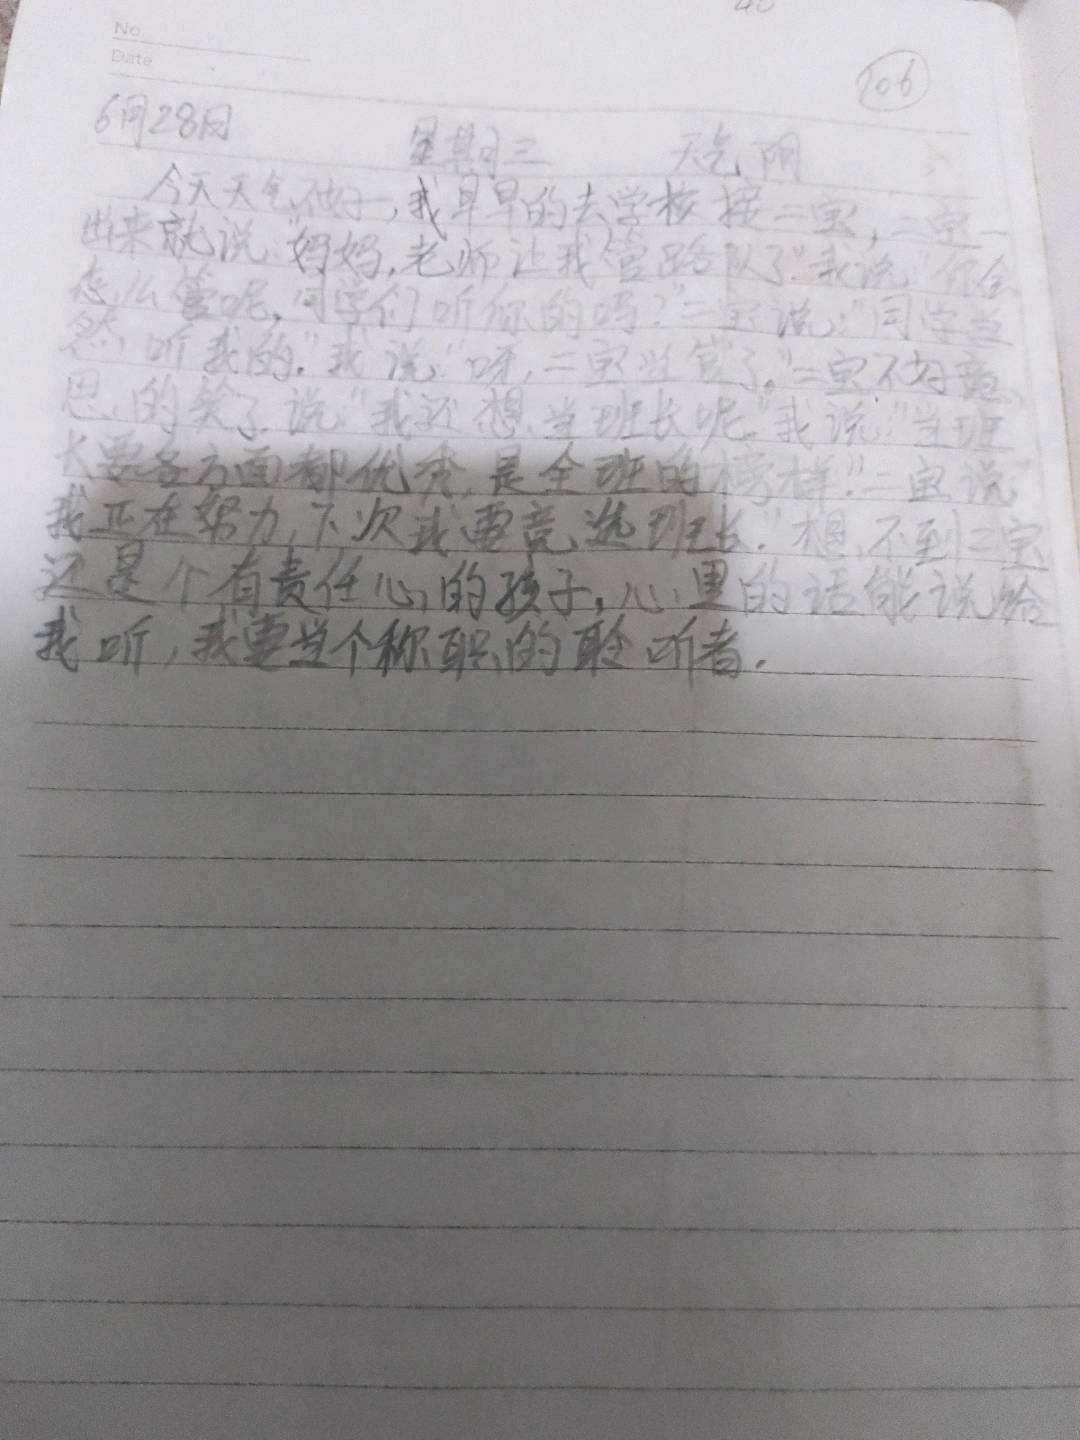 40
No
Date
106
6月28日 星期三 天气 阴
今天天气不好,我早早的去学校接二宝,二宝一
出来就说:"妈妈,老师让我管路队了"我说:"你会
怎么管呢,同学们听你的吗?"二宝说:"同学当
然听我的."我说:"呀,二宝当官了."二宝不好意
思的笑了说:"我还想当班长呢"我说:"当班
长要各方面都优秀,是全班的榜样."二宝说"
我正在努力,下次我要竞选班长."想不到二宝
还是个有责任心的孩子,心里的话能说给
我听,我要当个称职的聆听者.